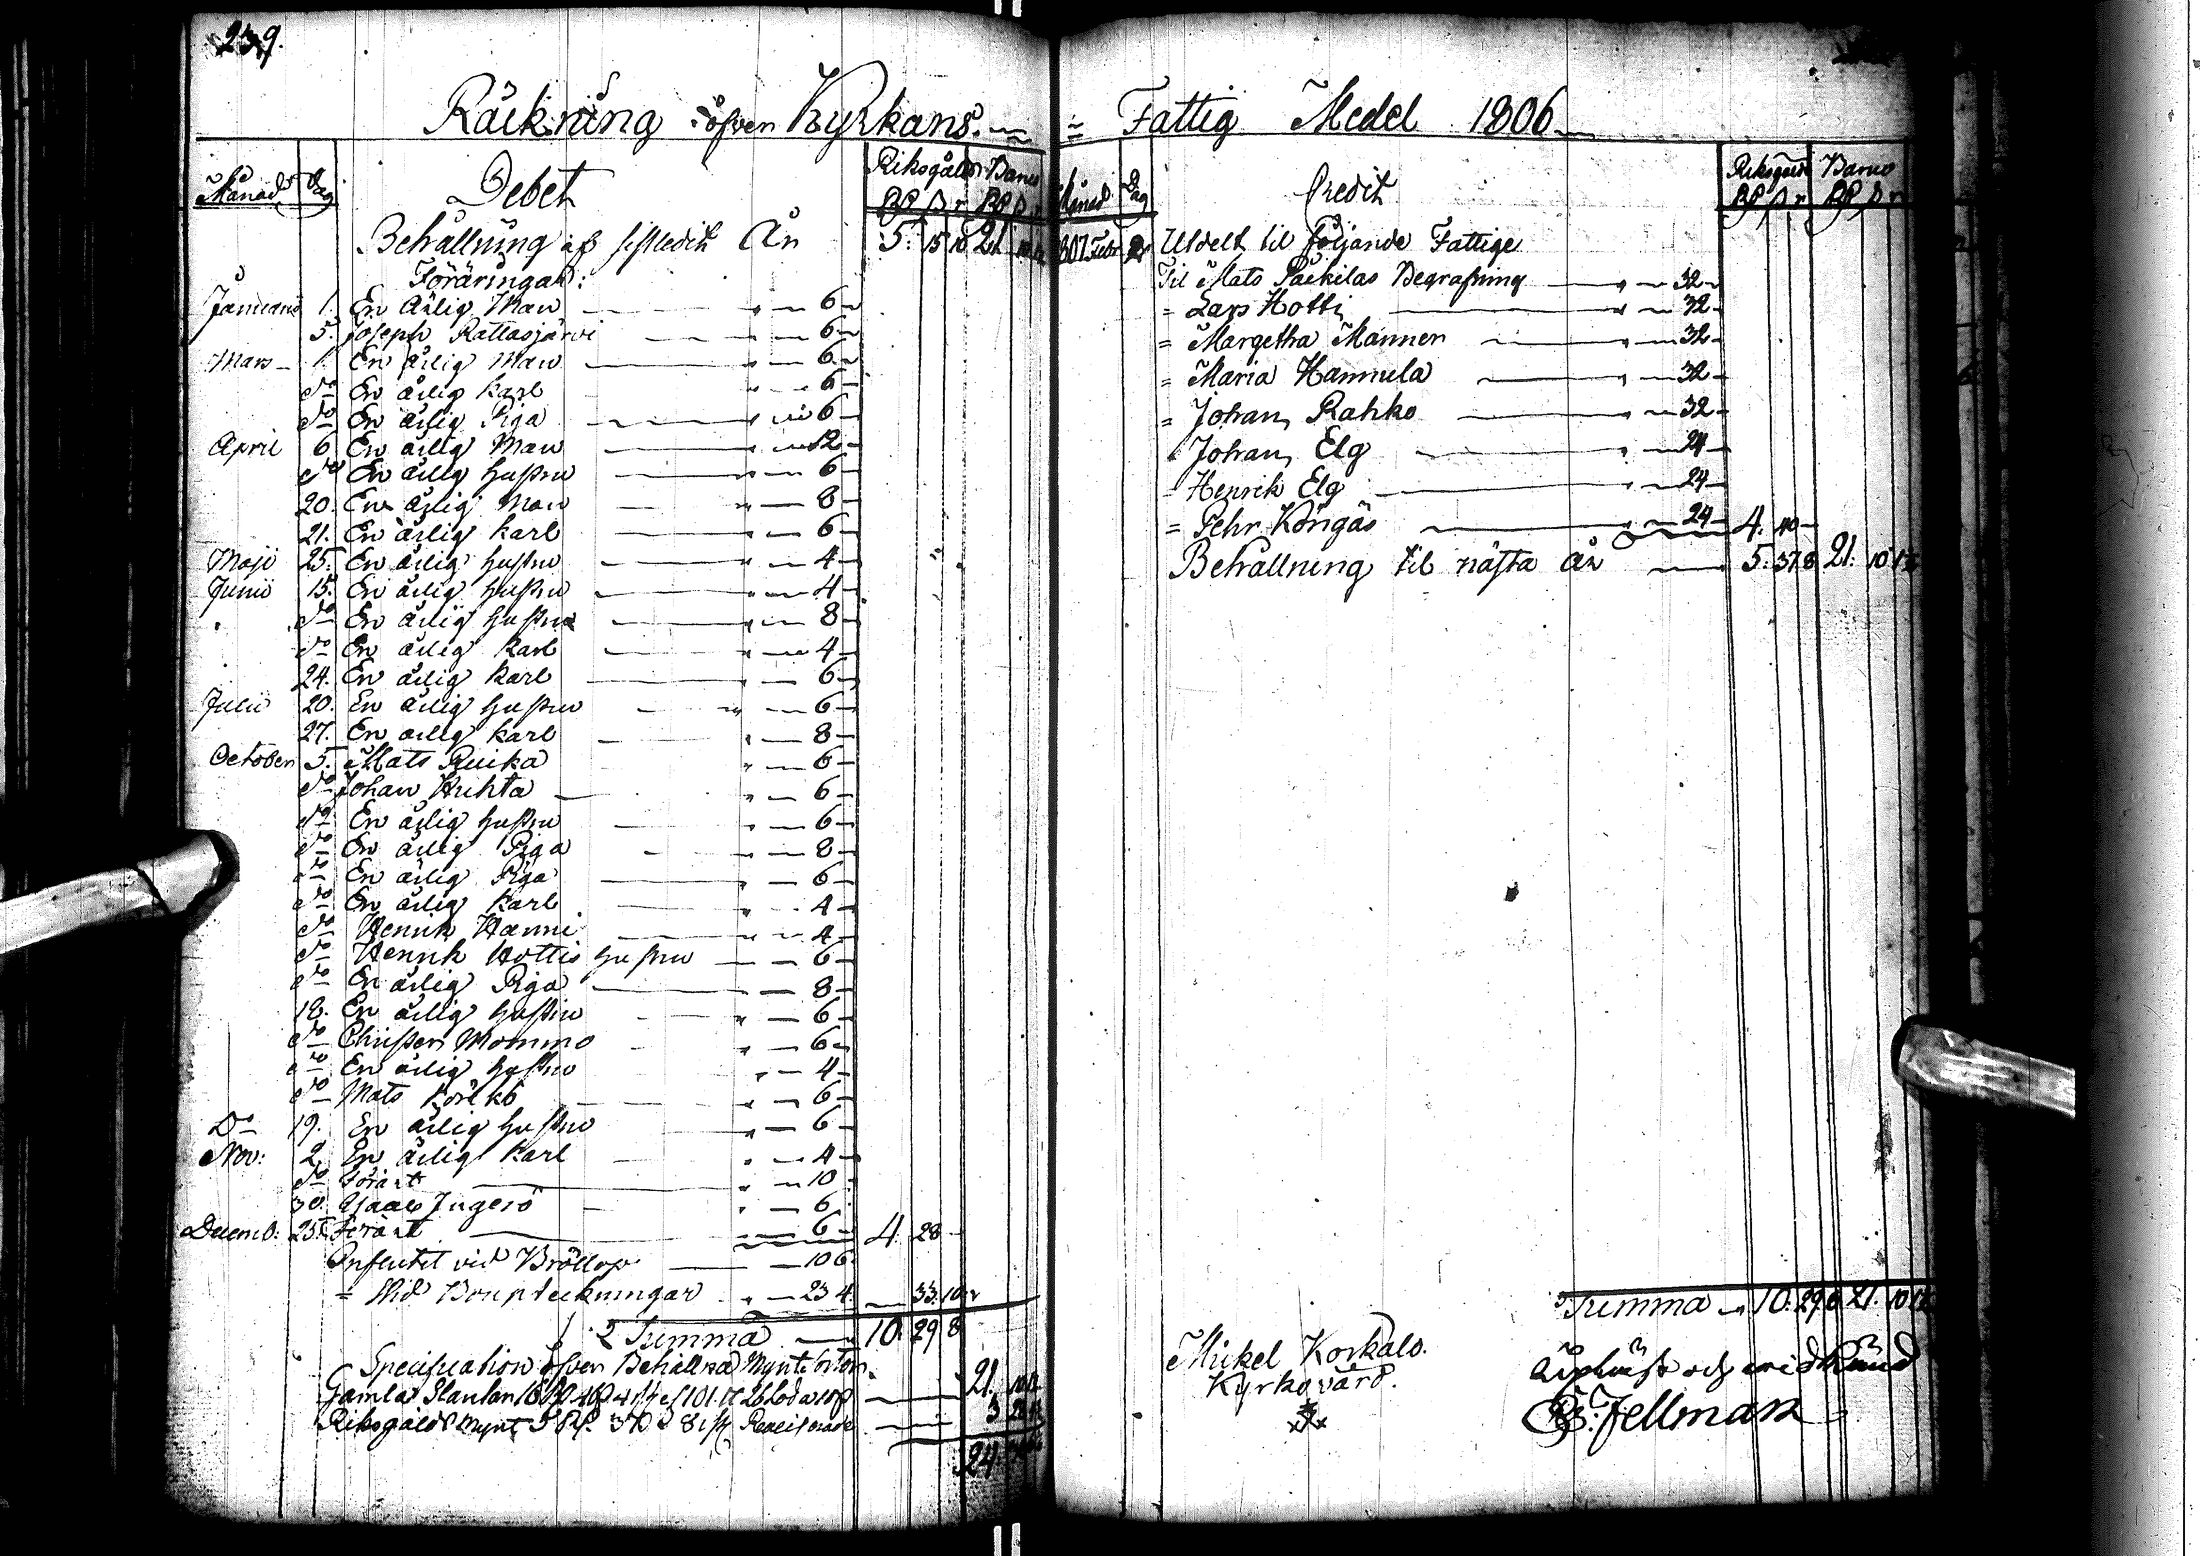 239.
Räckning öfver Kyrkans
Månad Dag Debet Riksgälds Banco
Rd ß r Rd ß r
Behållning af sistledit År 5. 15 10 21
Föräringar:
Januarii 1. En ärlig Man 6
5. Joseph Rattasjärvi 6
Mars 1. En ärlig Man 6
do En ärlig Karl 6
do En ärlig Piga 6
April 6 En ärlig Man 12
do En ärlig hustru 6
20. En ärlig Man 8
21. En ärlig Karl 6
Maji 25. En ärlig hustru 4
Junii 15. En ärlig hustru 4
do En ärlig hustru 8
do En ärlig Karl 4
24. En ärlig Karl 6
Julii 20. En ärlig hustru 6
27. En ärlig Karl 8
October 5. Mats Ruika 6
do Johan Huhta 6
do En ärlig hustru 6
do En ärlig Piga 8
do En ärlig Piga 6
do En ärlig Karl 4
do Henrik Hanni 4
do Henrik Hottis hustru 6
do En ärlig Piga 8
18. En ärlig hustru 6
do Christer Mommo 6
do En ärlig hustru 4
do Mats Körkö 6
Do 19. En ärlig hustru 6
Nov: 2. En ärlig Karl 4
do Förärt 10
30. Isaac Ingerö 6
Decemb: 25. Förärt 6 4. 28
Influtit vid Bröllop 10 6
= Vid Bouptekningar 23 4. 33. 10
Summa 10. 29 8
Specification öfver Behållna Myntsorter
Gamla Slantar 21.
Riksgälds Mynt 3
24.
= Fattig Medel 1806
Månad Dag Credit Riksgäld Banco
Rd ß r Rd ß r
1807. Febr. Utdelt til följande Fattige
Til Mats Päckilas Begrafning 32
= Lars Hotti 32
= Margetha Männer 32
= Maria Hannula 32
= Johan Rahko 32
Johan Elg 24
= Henrik Elg 24
= Pehr Köngäs 24 4. 40
Behållning til nästa År 5. 37. 8 21. 10
Summa 10. 29 21. 10
Mickel Korkalo.
Kyrkovärd.
E: Fellman